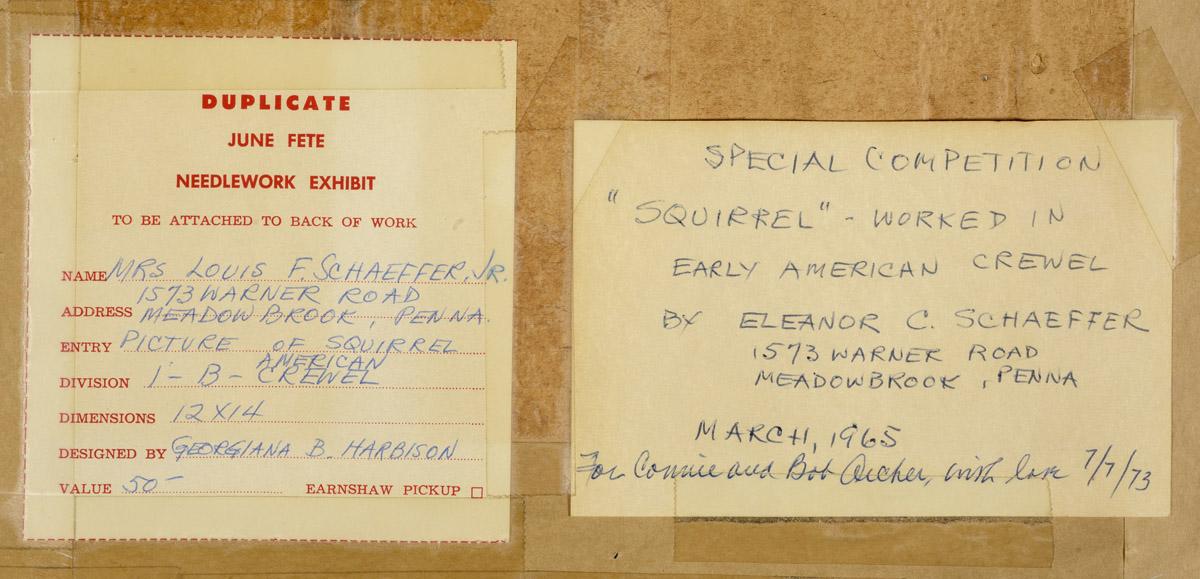 DUPLICATE
JUNE FETE
NEEDLEWORK EXHIBIT
TO BE ATTACHED TO BACK OF WORK
NAME MRS LOUIS F. SCHAEFFER, JR.
1573 WARNER ROAD
ADDRESS MEADOWBROOK, PENNA.
ENTRY PICTURE OF SQUIRREL
AMERICAN
DIVISION 1-B-CREWEL
DIMENSIONS 12X14
DESIGNED BY GEORGIANA B. HARBISON
VALUE 50- EARNSHAW PICKUP
SPECIAL COMPETITION
"SQUIRREL" - WORKED IN
EARLY AMERICAN CREWEL
BY ELEANOR C. SCHAEFFER
1573 WARNER ROAD
MEADOWBROOK, PENNA
MARCH, 1965
For Connie and Bob Archer, with love 7/7/73